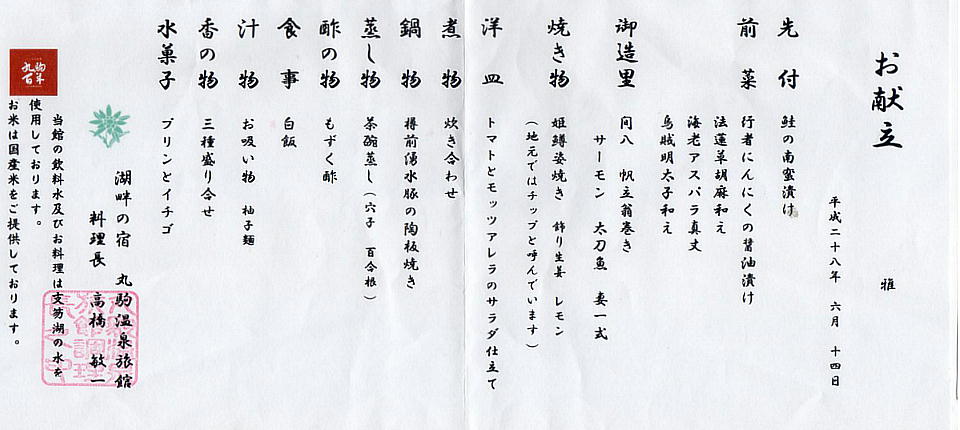 お献立
雅
平成二十八年 六月 十四日
先付 鮭の南蛮漬け
前菜 行者にんにくの醤油漬け
法蓮草胡麻和え
海老アスパラ真丈
烏賊明太子和え
御造里 間八 帆立翁巻き
サーモン 太刀魚 妻一式
焼き物 姫鱒姿焼き 飾り生姜 レモン
(地元ではチップと呼んでいます)
洋皿 トマトとモッツアレラのサラダ仕立て
煮物 炊き合わせ
鍋物 樽前湧水豚の陶板焼き
蒸し物 茶碗蒸し(穴子 百合根)
酢の物 もずく酢
食事 白飯
汁物 お吸い物 柚子麺
香の物 三種盛り合せ
水菓子 プリンとイチゴ
湖畔の宿 丸駒温泉旅館
料理長 高橋敏一
当館の飲料水及びお料理は支笏湖の水を
使用しております。
お米は国産米をご提供しております。
丸駒
百年